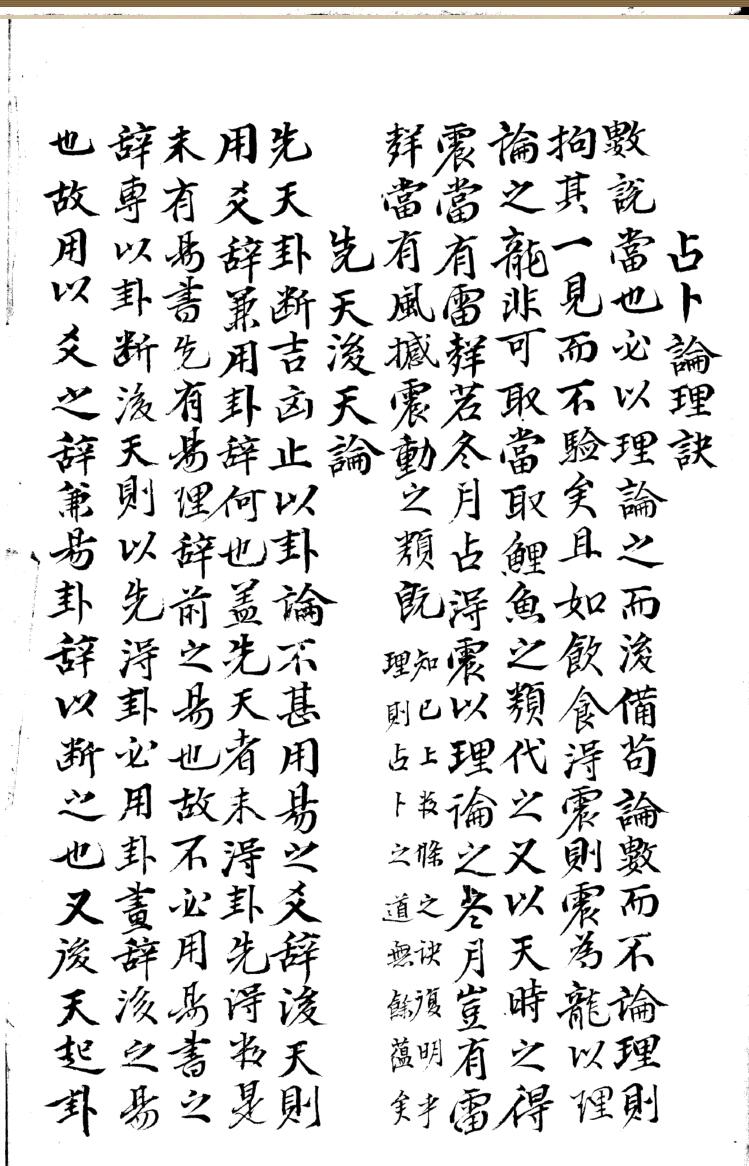 占卜論理訣
數說當也必以理論之而後備苟論數而不論理則
拘其一見而不驗矣且如飲食得震則震為龍以理
論之龍非可取當取鯉魚之類代之又以天時之得
震當有雷聲若冬月占得震以理論之冬月豈有雷
聲當有風撼震動之類既知已上数條之訣復明乎
理則占卜之道無餘蘊矣
先天後天論
先天卦斷吉凶止以卦論不甚用易之爻辞後天則
用爻辞兼用卦辞何也盖先天者未得卦先得数是
未有易書先有易理辞前之易也故不必用易書之
辞專以卦断後天則以先得卦必用卦畫辞後之易
也故用以爻之辞兼易卦辞以断之也又後天起卦